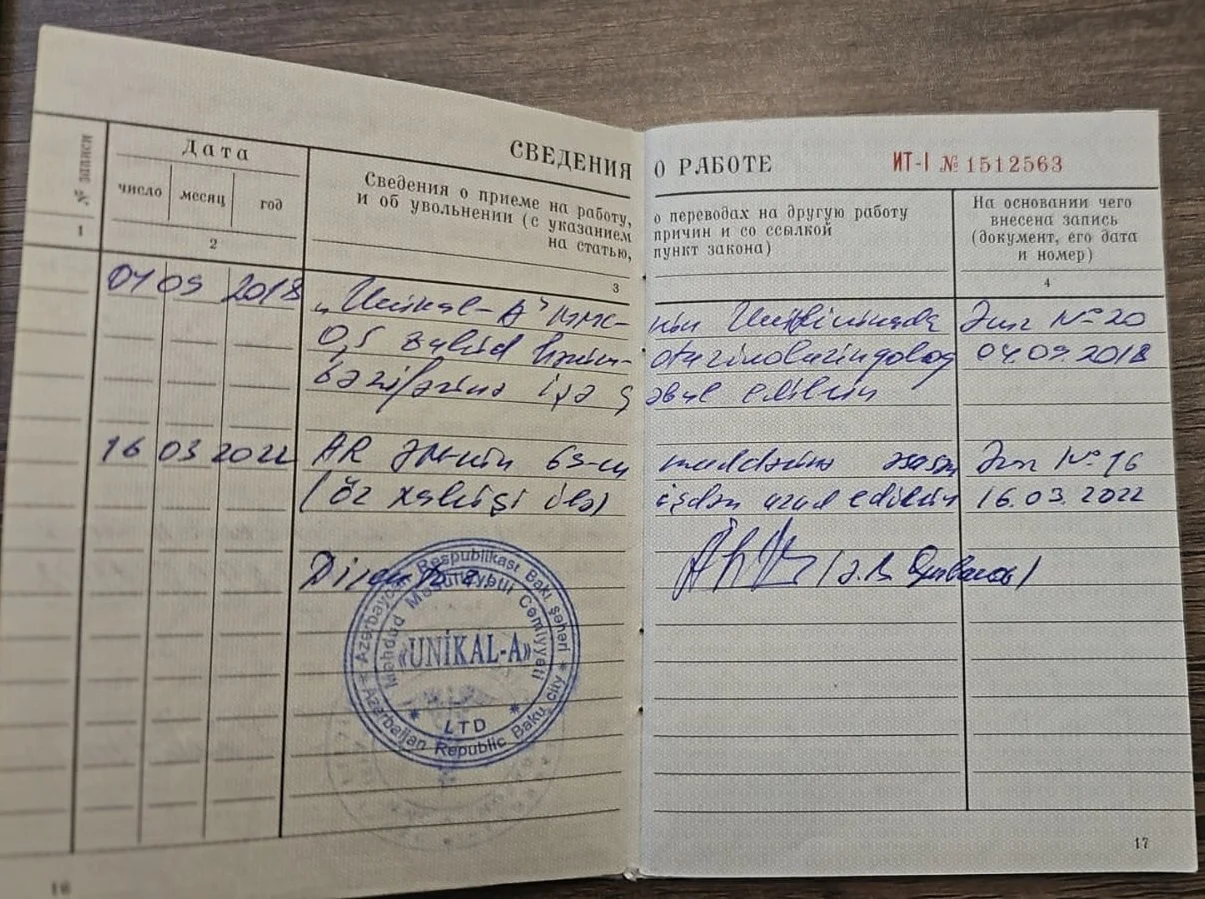 СВЕДЕНИЯ О РАБОТЕ ИТ-I № 1512563
№ записи
Дата
число месяц год
Сведения о приеме на работу, о переводах на другую работу
и об увольнении (с указанием причин и со ссылкой
на статью, пункт закона)
На основании чего
внесена запись
(документ, его дата
и номер)
1 2 3 4
04 09 2018 "Unikal-A" MMC-nin Əmr № 20
0,5 ştat otorinolarinqoloq 04.09.2018
vəzifəsinə işə qəbul edilsin
16 03 2022 AR ƏM-nin 69-cu maddəsinə əsasən Əmr № 16
(öz xahişi ilə) işdən azad edilsin 16.03.2022
Direktor
Azərbaycan Respublikası Bakı şəhəri
Məhdud Məsuliyyətli Cəmiyyəti
«UNİKAL-A»
LTD
Azerbaijan Republic Baku city
16
17